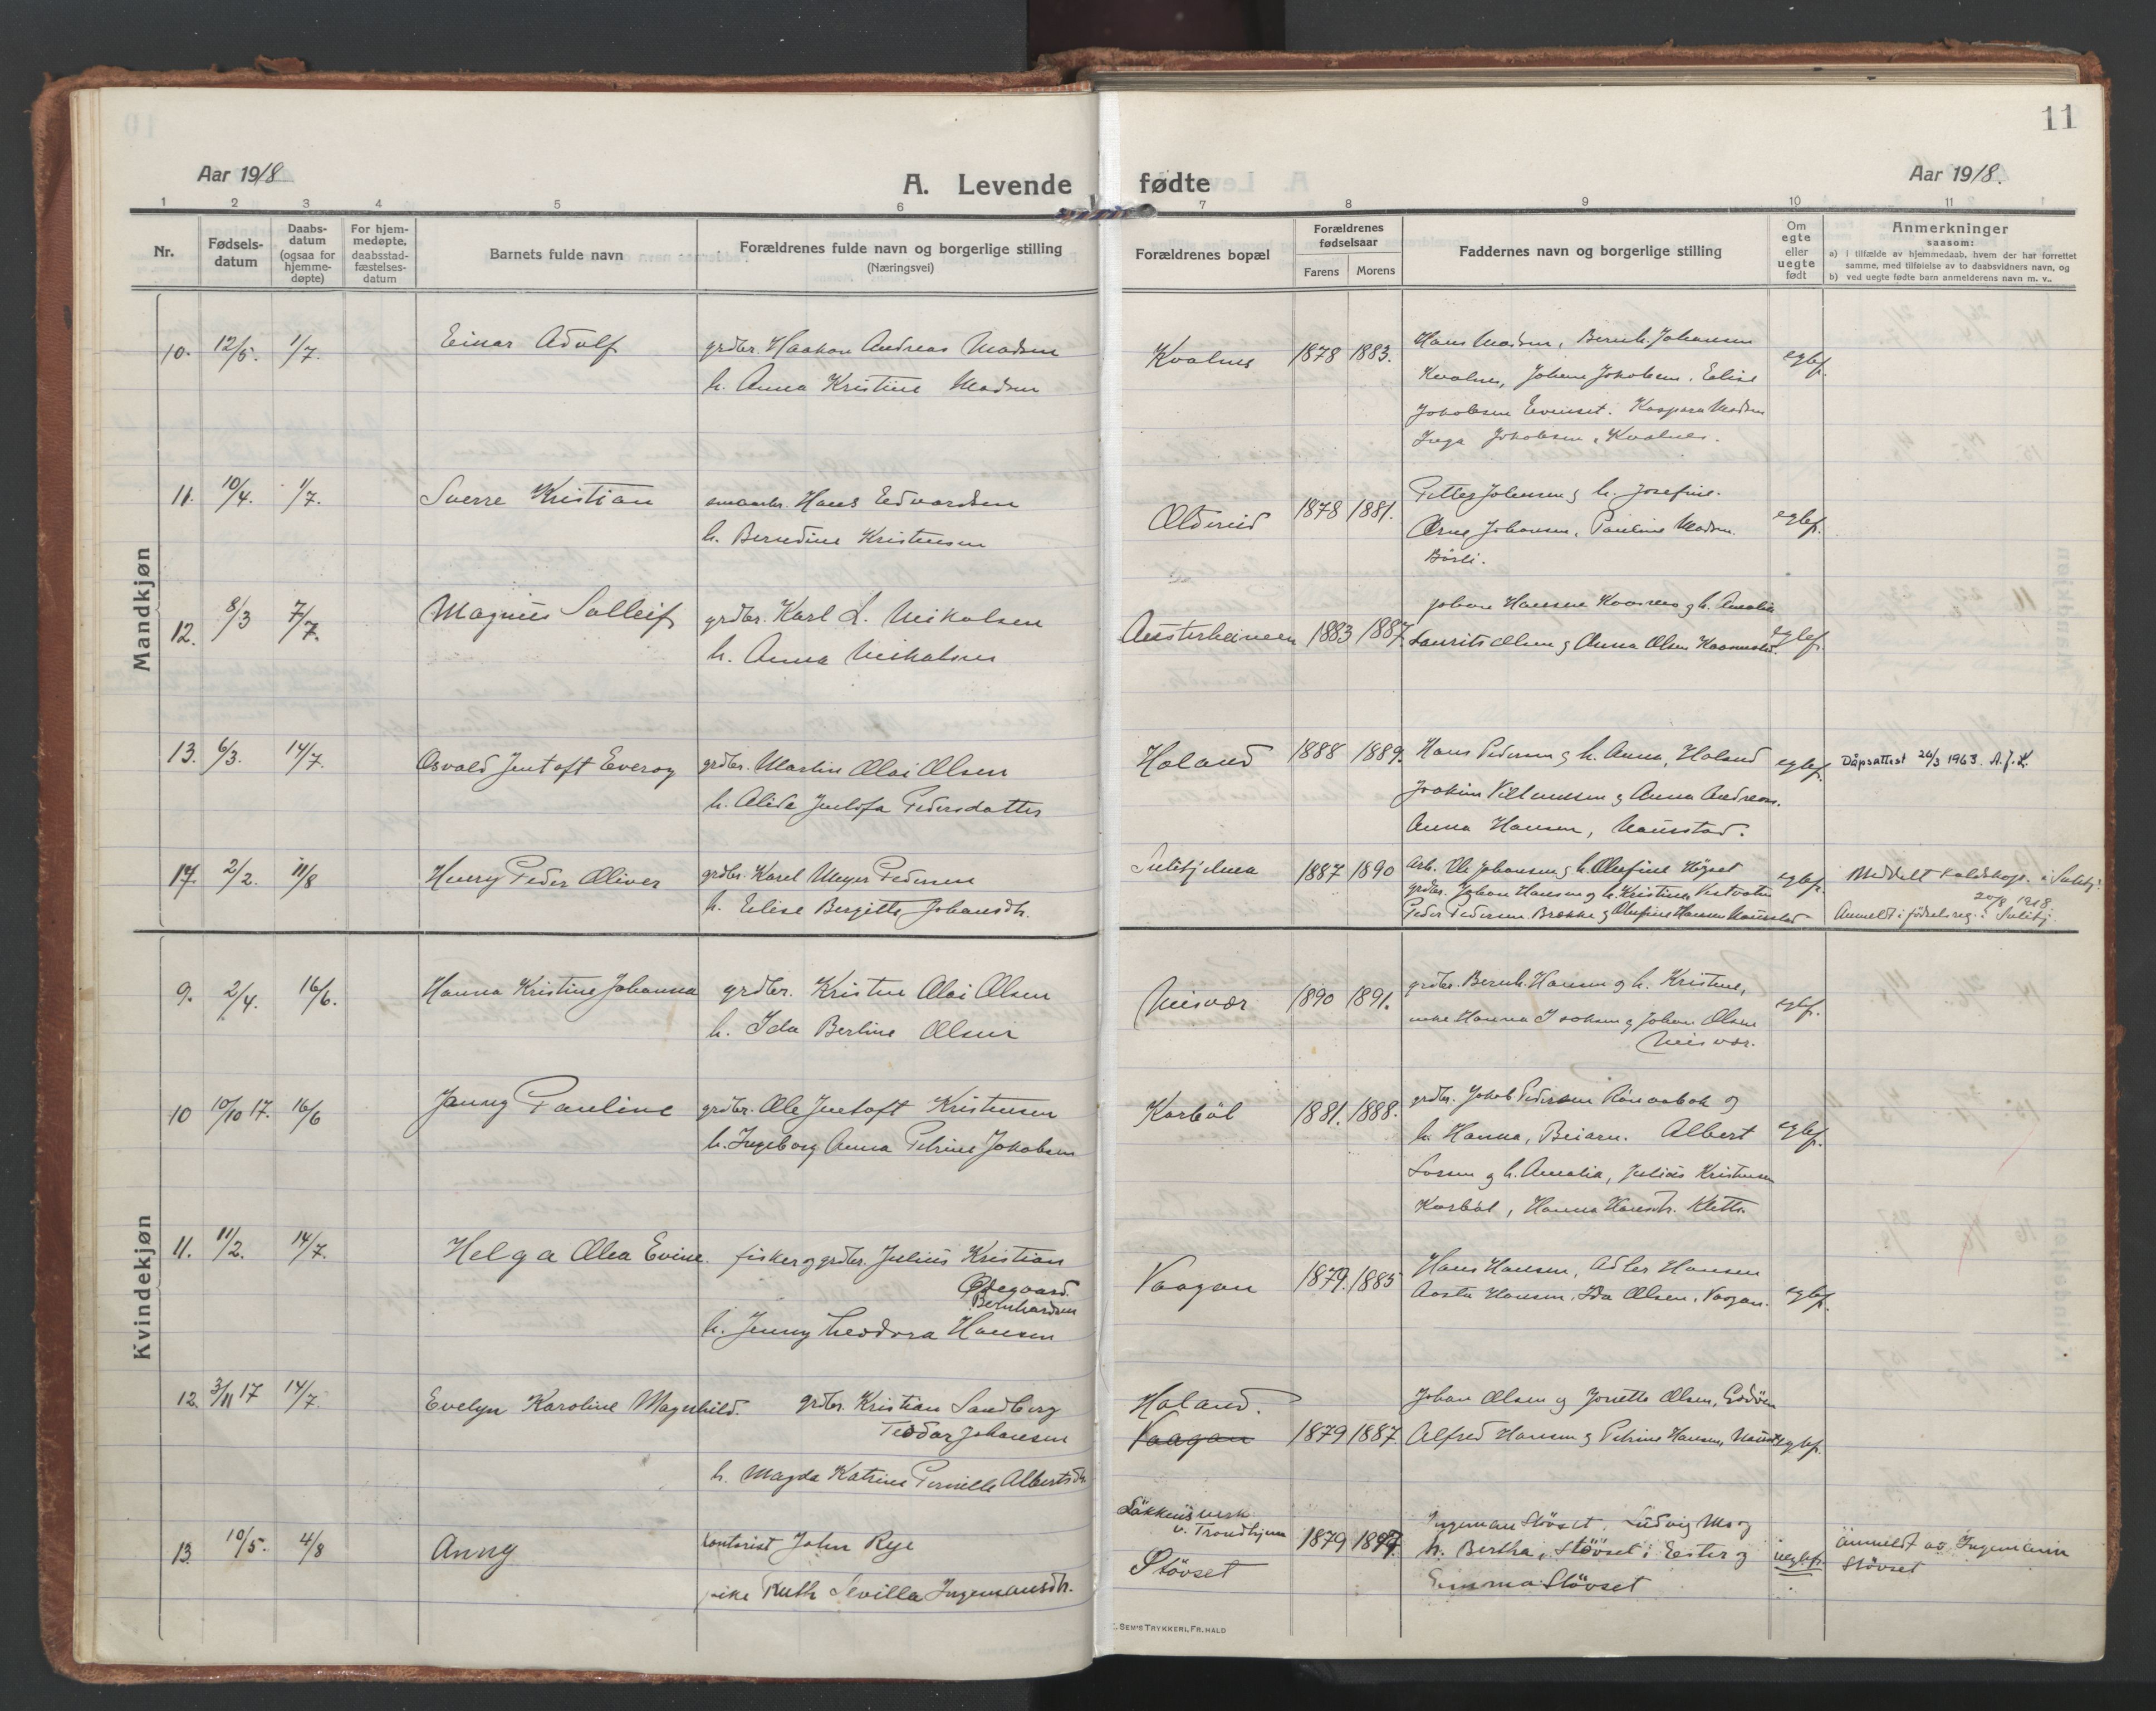 11
Aar 1918
A. Levende fødte
Aar 1918.
1 2 3 4 5 6 7 8 9 10 11
Nr.
Fødsels-
datum
Daabs-
datum
(ogsaa for
hjemme-
døpte)
For hjem-
medøpte,
daabsstad-
fæstelses-
datum
Barnets fulde navn
Forældrenes fulde navn og borgerlige stilling
(Næringsvei)
Forældrenes bopæl
Forældrenes
fødselsaar
Farens
Morens
Faddernes navn og borgerlige stilling
Om
egte
eller
uegte
født
Anmerkninger
saasom:
a) i tilfælde av hjemmedaab, hvem der har forrettet
samme, med tilføielse av to daabsvidners navn, og
b) ved uegte fødte barn anmelderens navn m. v..
Mandkjøn
10. 12/5. 1/7. Einar Adolf
grdbr. Haakon Andreas Madsen
h. Anna Kristine Madsen
Kvalnes 1878 1883.
Hans Madsen, Bernh. Johansen
Kvalnes, Johan Jakobsen, Elise
Jakobsen Evenset. Kaspara Madsen
Inga Jakobsen, Kvalnes.
egtef.
11. 10/4. 1/7. Sverre Kristian
smaabr. Hans Edvardsen
h. Berndine Kristensen
Oldereid 1878 1881.
Petter Johansen og h. Josefine.
Arne Johansen, Pauline Madsen
Börli.
egtef.
12. 8/3 7/7. Magnus Solleif
grdbr. Karl L. Nikolsen
h. Anna Nikolsen
1883 1887.
Johan Hansen og h. Amalia
Laurits Olsen og Anna Olsen
egtef.
13. 6/3. 14/7. Osvald Jentoft Everoy
grdbr. Martin Olai Olsen
h. Alida Jentofa Pedersdatter
Holand 1888 1889.
Hans Pedersen og h. Anna, Holand
Joakim Vilumsen og Anna Andreas.
Anna Hansen, Naustad.
egtef.
Dåpsattest 26/3 1963. A.J.L.
14. 2/2. 11/8 Henry Peder Oliver
grdbr. Karel Meyer Pedersen
h. Elise Bergitte Johansdtr.
Sulitjelma 1887 1890
arb. Ole Johansen og h. Olufine Högset
grdbr. Johan Hansen og h. Kristine Vestvatn
Peder Pedersen Brække og Olufine Hansen Naustad
egtef.
Meddelt i Sulitj.
20/8 1918.
Anmeldt i fødselsreg. i Sulitj.
Kvindekjøn
9. 2/4. 16/6. Hanna Kristine Johanna
grdbr. Kristen Olai Olsen
h. Ida Berline Olsen
Misvær 1890 1891.
grdbr. Bernh. Hansen og h. Kristine,
enke Hanna Isaksen og Johan Olsen
Misvær.
egtef.
10 10/10 17. 16/6 Janny Pauline
grdbr. Ole Jentoft Kristensen
h. Ingeborg Anna Petrine Jakobsen
Karböl 1881. 1888.
grdbr. Jakob Pedersen og
h. Hanna, Beiarn. Albert
Larsen og h. Amalia, Julius Kristensen
Karböl, Hanna Hansdtr. Klette.
egtef.
11. 11/2. 14/7. Helga Olea Evine.
fisker og grdbr. Julius Kristian
Ødegaard.
Bernhardsen
h. Jenny Teodora Hansen
Vaagan 1879. 1885
Hans Hansen, Adler Hansen
Aasta Hansen, Ida Olsen, Vaagan.
egtef.
12. 3/11 17 14/7. Evelyn Karoline Magnhild.
grdbr. Kristian Sandberg
Teodor Johansen
h. Magda Katrine Pernille Albertsdtr.
Holand.
Vaagan
1879 1887.
Johan Olsen og Jonette Olsen, Godöen
Alfred Hansen og Petrine Hansen, Naust.
egtef.
13 10/5. 4/8 Anny
kontorist John Rye
pike Ruth Sevilla Ingemansdtr.
Läkkens verk
v. Trondhjem
Stövset
1879 1897.
Ingeman Stövset, Ludvig Mo og
h. Bertha, Stövset, Ester og
Emma Stövset
uegtef.
anmeldt av Ingemann
Stövset
E. SEM'S TRYKKERI, FR. HALD